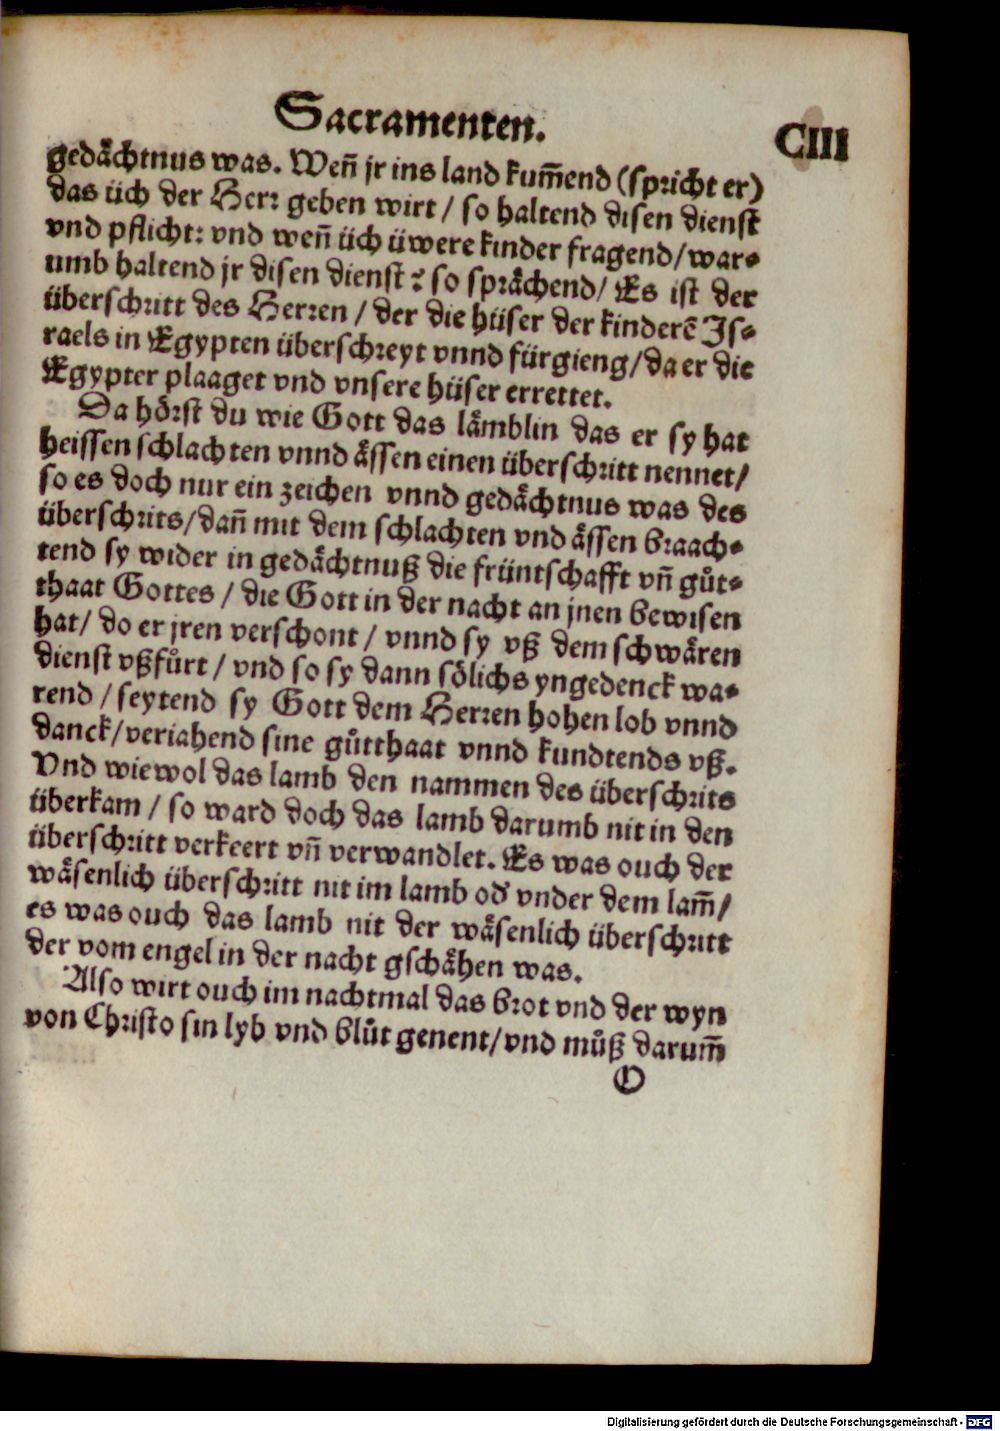 Sacramenten.
CIII
gedaͤchtnus was. Weñ jr ins land kum̃end (spricht er)
das üch der Herr geben wirt / so haltend disen dienst
vnd pflicht: vnd weñ üch üwere kinder fragend / war⸗
umb haltend jr disen dienst? so spraͤchend / Es ist der
überschritt des Herren / der die hüser der kinderẽ Is⸗
raels in Egypten überschreyt vnnd fürgieng / da er die
Egypter plaaget vnd vnsere hüser errettet.
Da hoͤrst du wie Gott das laͤmblin das er sy hat
heissen schlachten vnnd aͤssen einen überschritt nennet /
so es doch nur ein zeichen vnnd gedaͤchtnus was des
überschrits / dañ mit dem schlachten vnd aͤssen braach⸗
tend sy wider in gedaͤchtnuß die früntschafft vñ guͤt⸗
thaat Gottes / die Gott in der nacht an jnen bewisen
hat / do er jren verschont / vnnd sy vß dem schwaͤren
dienst vßfuͤrt / vnd so sy dann soͤlichs yngedenck wa⸗
rend / seytend sy Gott dem Herren hohen lob vnnd
danck / veriahend sine guͤtthaat vnnd kundtends vß.
Vnd wiewol das lamb den nammen des überschrits
überkam / so ward doch das lamb darumb nit in den
überschritt verkeert vñ verwandlet. Es was ouch der
waͤsenlich überschritt nit im lamb od' vnder dem lam̃ /
es was ouch das lamb nit der waͤsenlich überschritt
der vom engel in der nacht gschaͤhen was.
Also wirt ouch im nachtmal das brot vnd der wyn
von Christo sin lyb vnd bluͦt genent / vnd muͦß darum̃
O
Digitalisierung gefördert durch die Deutsche Forschungsgemeinschaft - DFG